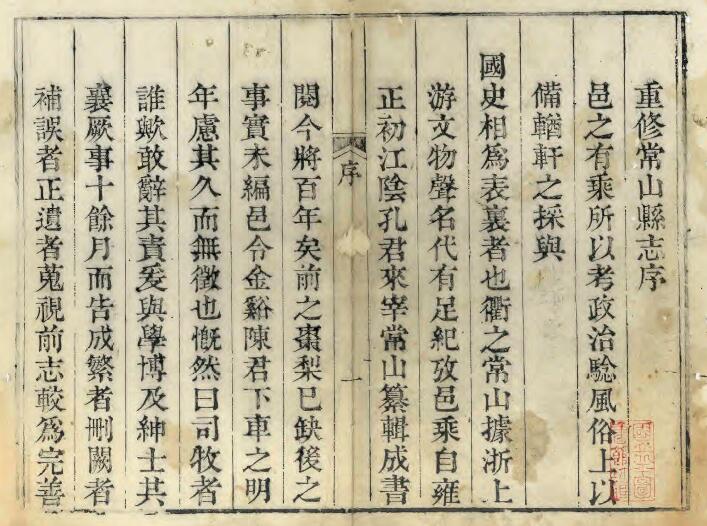 重修常山縣志序
邑之有乘所以考政治騐風俗上以
備輶軒之採與
國史相爲表裏者也衢之常山據浙上
游文物聲名代有足紀攷邑乘自雍
正初江陰孔君來宰常山纂輯成書
序
一
閱今將百年矣前之棗梨已缺後之
事實未編邑令金谿陳君下車之明
年慮其久而無徵也慨然曰司牧者
誰歟敢辭其責爰與學博及紳士共
襄厥事十餘月而告成繁者刪闕者
補誤者正遺者蒐視前志較爲完善